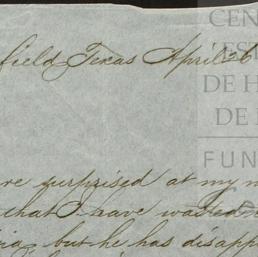 CEN
ES
field Texas April 26
DE H
DE
FUN
re surprised at my n
that I have waited
but he has disapp